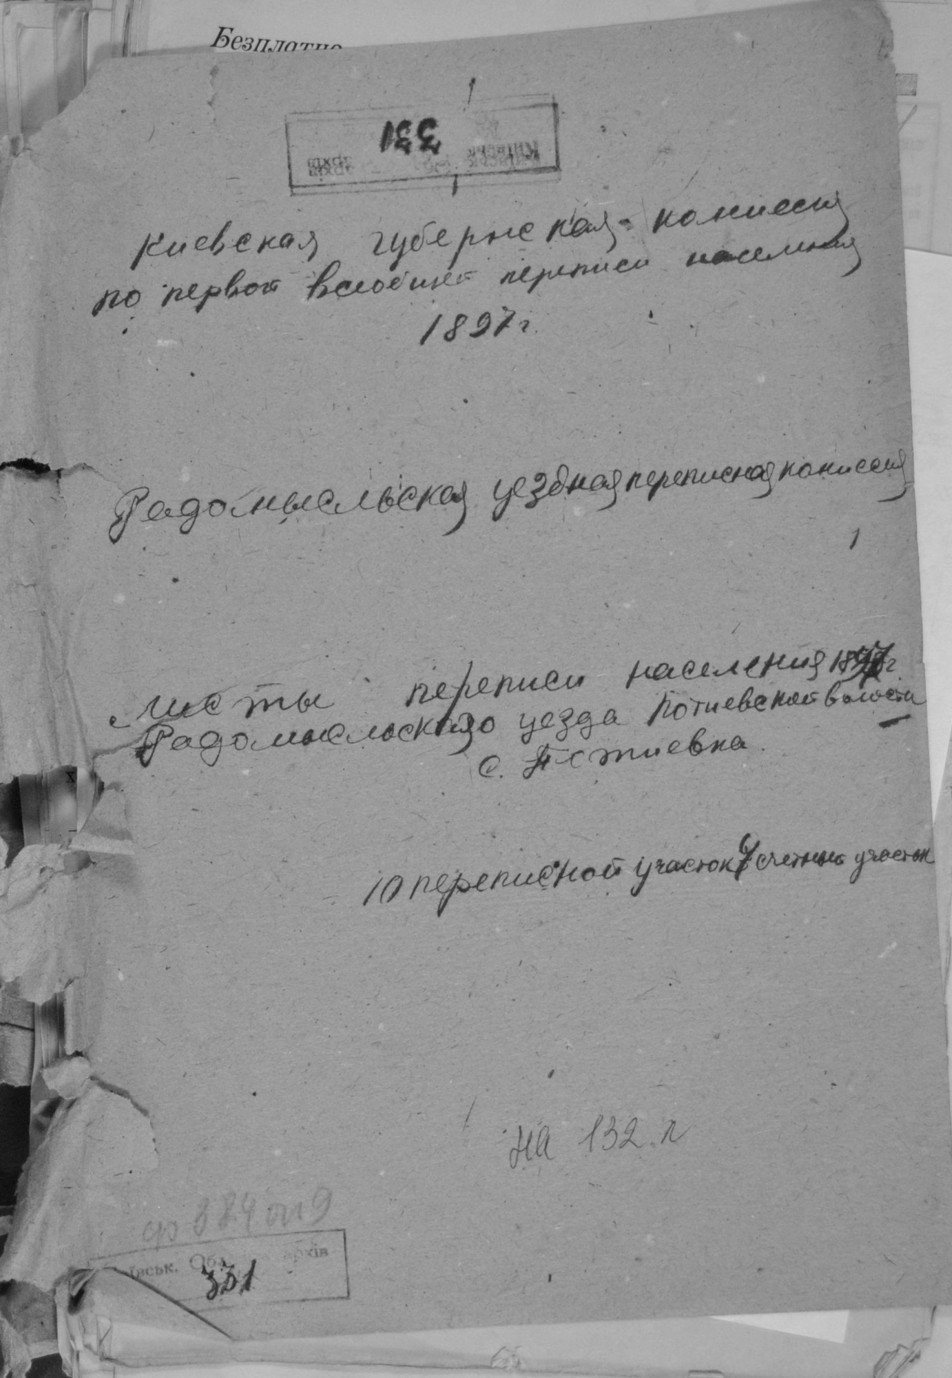 Безплатно
331
Киевская губернская комиссия
по первой всеобщей переписи населения
1897 г.
Радомысльская уездная переписная комиссия
1
Листы переписи населения 1897 г.
Радомысльского уезда Потиевской волости
с. Потиевка
10 переписной участок 7 счетный участок
на 132 л
ф 384 оп 9
Київськ. Обл. архів
331